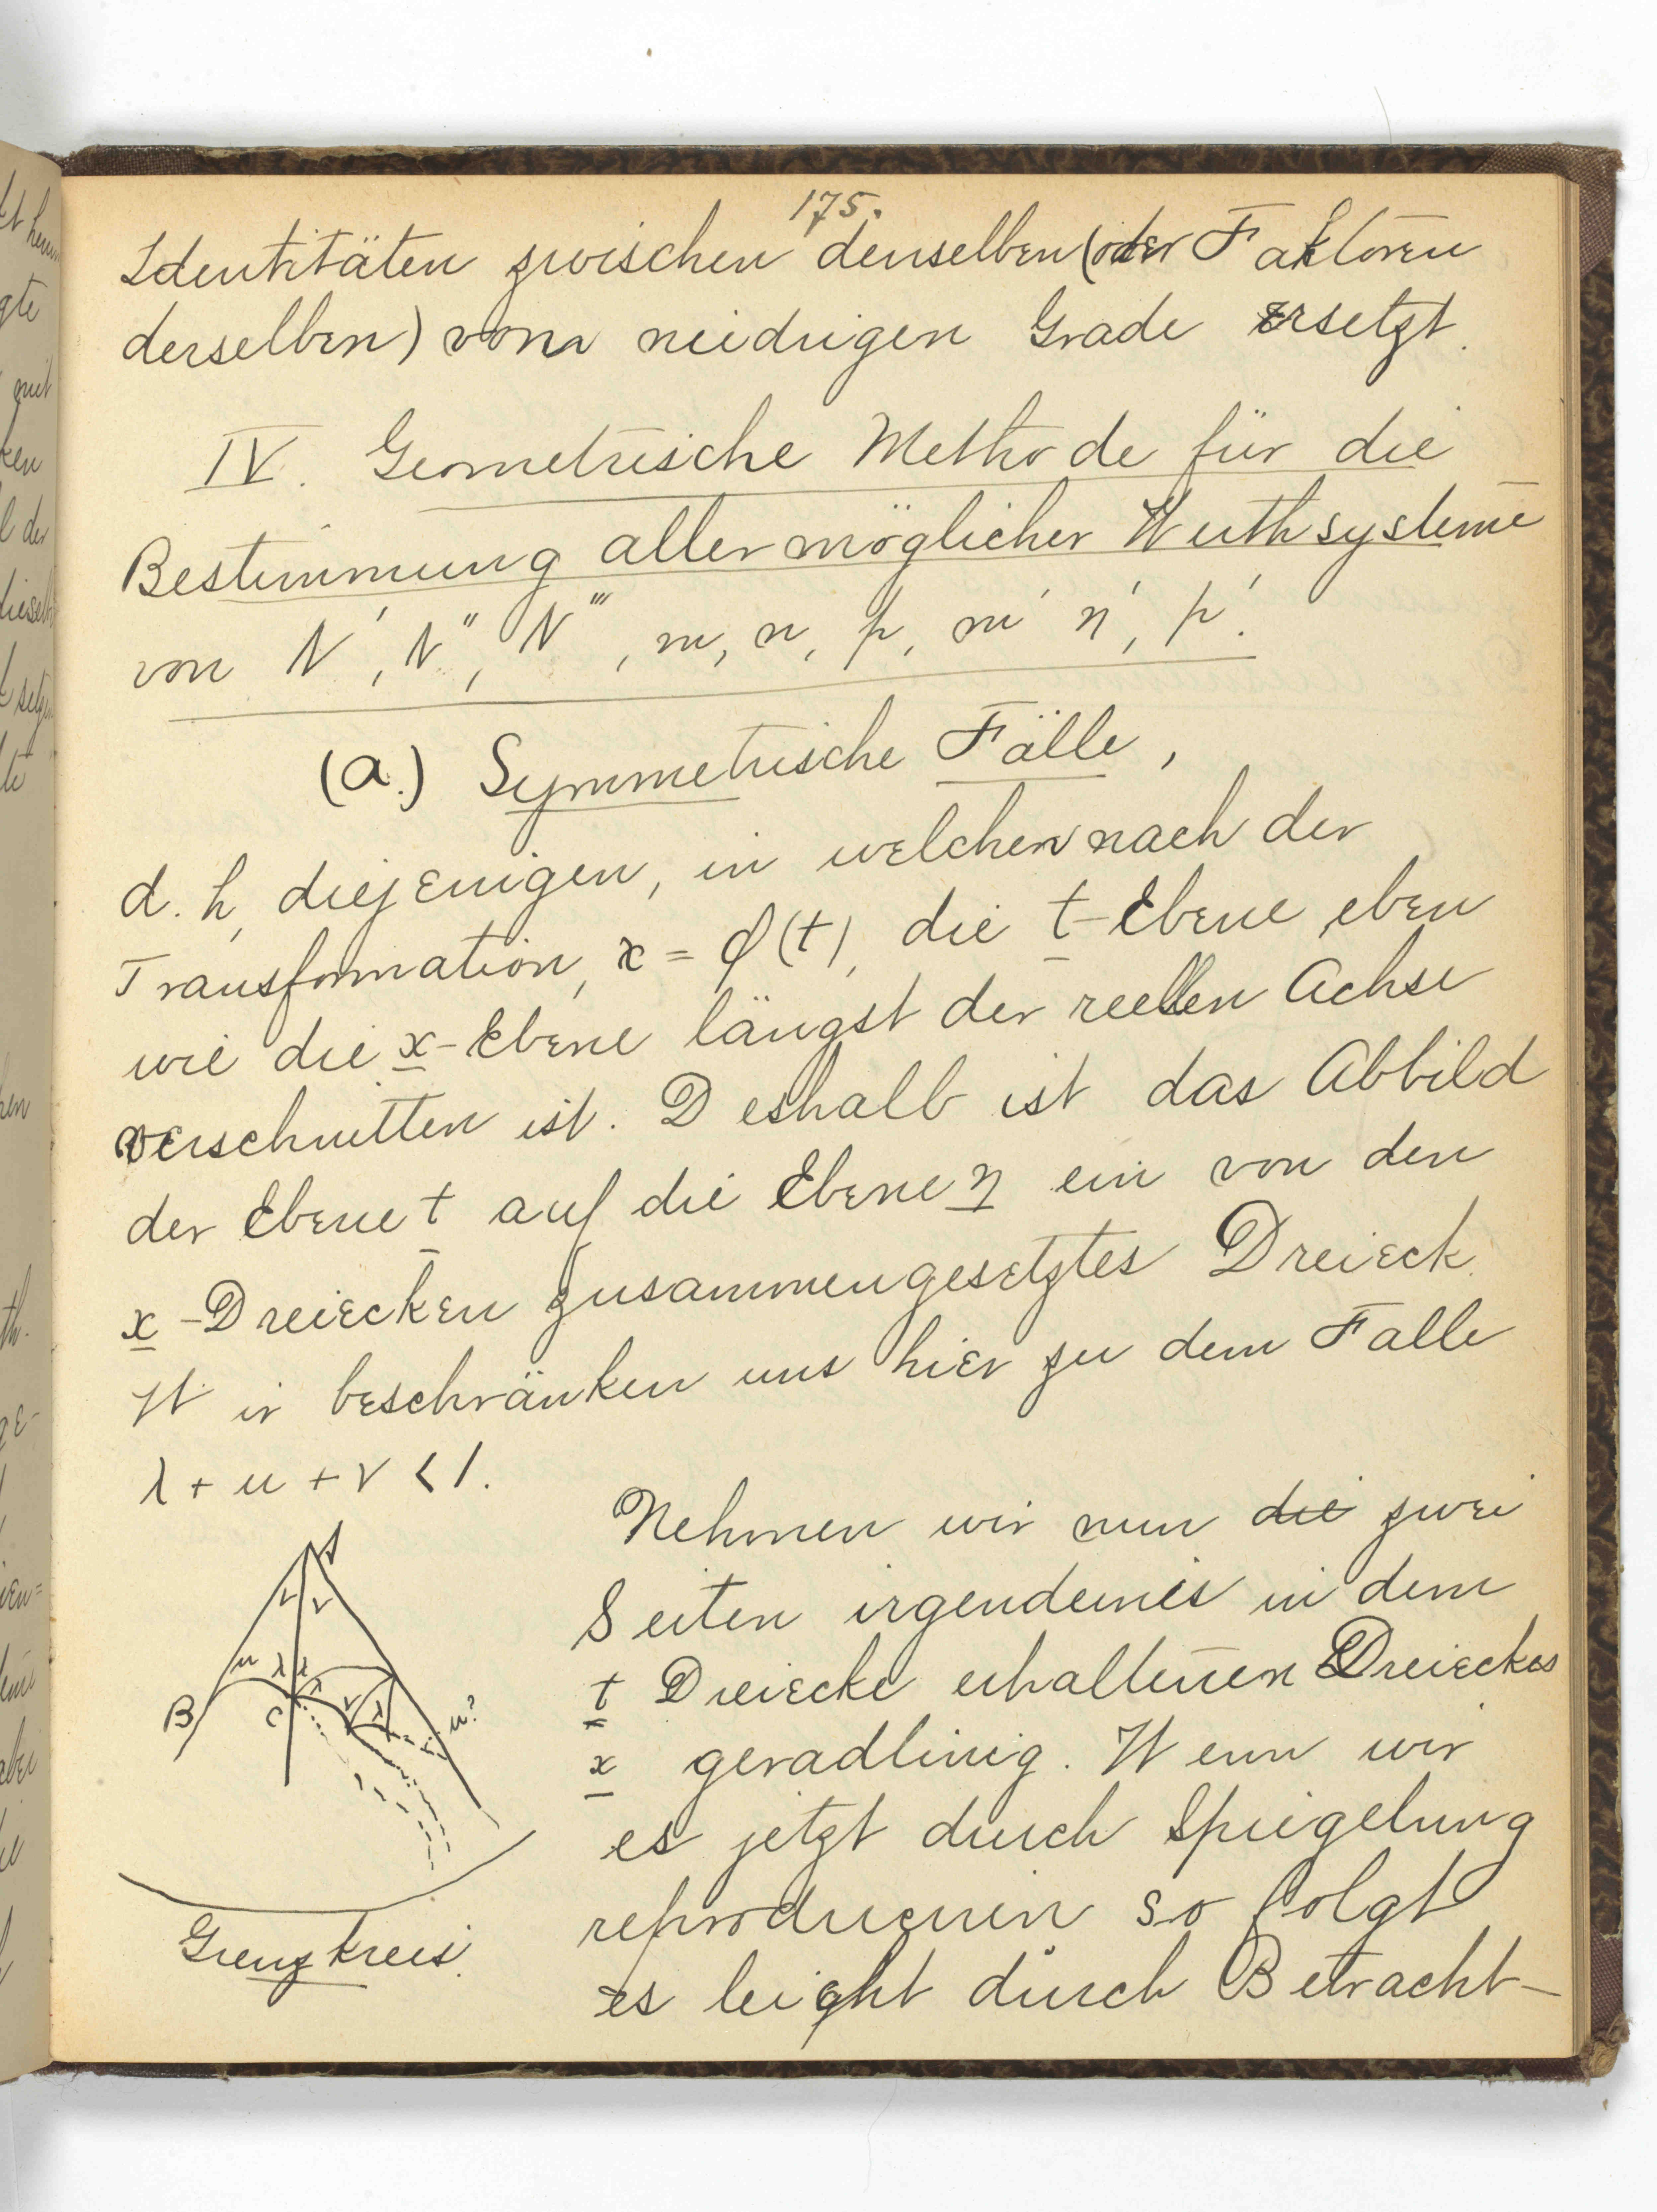 175.
Identitäten zwischen denselben (oder Faktoren
derselben) vom neidrigen Grade ersetzt.
IV. Geometrische Methode für die
Bestimmung aller möglicher Werthsysteme
von N', N'', N''', m, n, p, m' n', p'.
(a.) Symmetrische Fälle,
d. h, diejenigen, in welchen nach der
Transformation, x = φ(t), die t-Ebene eben
wie die x-Ebene längst der reellen Achse
verschnitten ist. Deshalb ist das Abbild
der Ebene t auf die Ebene η ein von den
x-Dreiecken zusammengesetztes Dreieck.
Wir beschränken uns hier zu dem Falle
λ + μ + ν < 1.
Nehmen wir nun die zwei
Seiten irgendeines in dem
t Dreiecke erhaltenen Dreieckes
x geradlinig. Wenn wir
es jetzt durch Spiegelung
reproducirin so folgt
es leicht durch Betracht-
A
ν ν
μ λ λ
B C λ ν λ μ?
Grenzkreis.